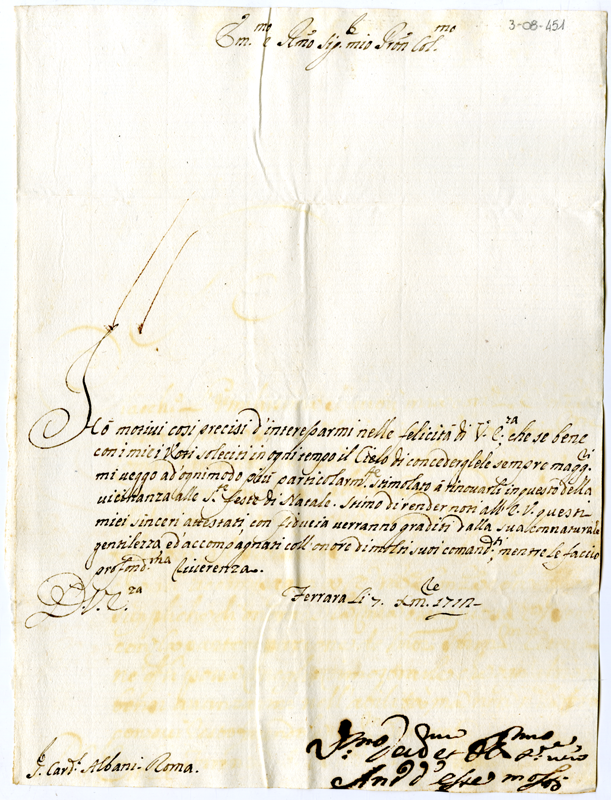 3-08-451
Em.mo e Rmo Sig.r mio Pron Col.mo
Hò motivi così precisi d'interessarmi nelle felicità di V. E.za che se bene
con i miei Voti soleciti in ogni tempo il Cielo di concederglele sempre magg.ri
mi veggo ad ogni modo più particolarm.te stimolato à rinovarli in questo della
vicinanza alle S.te feste di Natale. Stimo di render non all' E. V. questi
miei sinceri attestati, con fiducia verranno graditi dalla sua connaturale
gentilezza, ed' accompagnati coll' onore di molti suoi comandi, mentre le faccio
profond.ma Riverenza.
D. V. E.za
Ferrara li 7. Xm.bre 1712
S.r Card.l Albani. Roma.